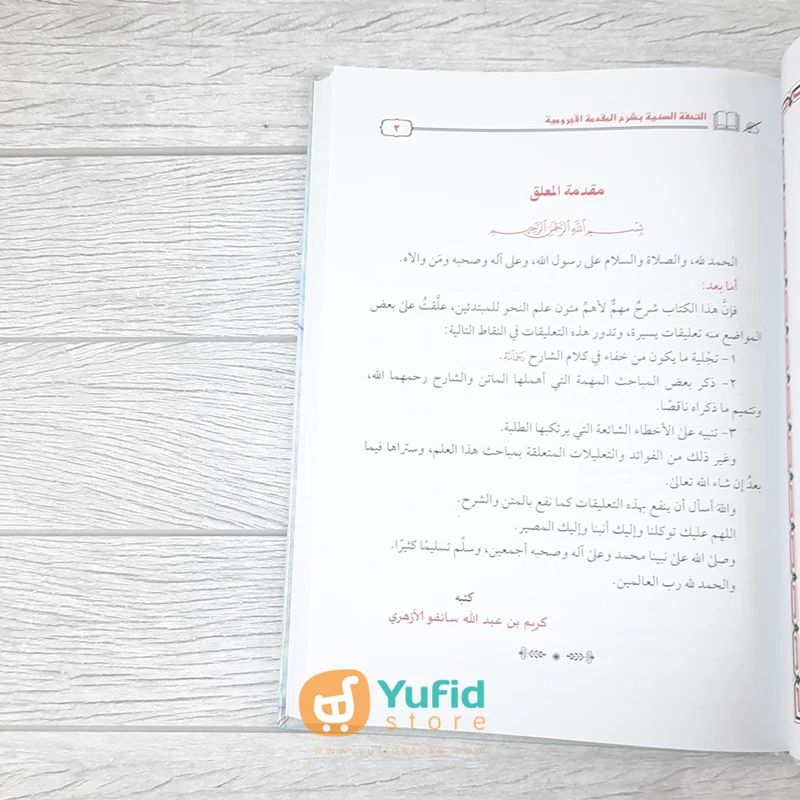 التحفة السنية بشرح المقدمة الآجرومية
٣
مقدمة المعلق
بِسْمِ اللَّهِ الرَّحْمَنِ الرَّحِيمِ
الحمد لله، والصلاة والسلام على رسول الله، وعلى آله وصحبه ومَن والاه.
أما بعد:
فإنَّ هذا الكتاب شرحٌ مهمٌّ لأهمِّ متون علم النحو للمبتدئين، علَّقتُ علىٰ بعض
المواضع منه تعليقات يسيرة، وتدور هذه التعليقات في النقاط التالية:
١- تجْلية ما يكون من خفاء في كلام الشارح رَحِمَهُ اللَّهُ.
٢- ذكر بعض المباحث المهمة التي أهملها الماتن والشارح رحمهما الله،
وتتميم ما ذكراه ناقصًا.
٣- تنبيه علىٰ الأخطاء الشائعة التي يرتكبها الطلبة.
وغير ذلك من الفوائد والتعليلات المتعلقة بمباحث هذا العلم، وستراها فيما
بعدُ إن شاء الله تعالىٰ.
واللهَ أسأل أن ينفع بهذه التعليقات كما نفع بالمتن والشرح.
اللهم عليك توكلنا وإليك أنبنا وإليك المصير.
وصلىٰ الله علىٰ نبينا محمد وعلىٰ آله وصحبه أجمعين، وسلِّم تسليمًا كثيرًا.
والحمد لله رب العالمين.
كتبه
كريم بن عبد الله سانفو الأزهري
Yufid
store
www.yufidstore.com